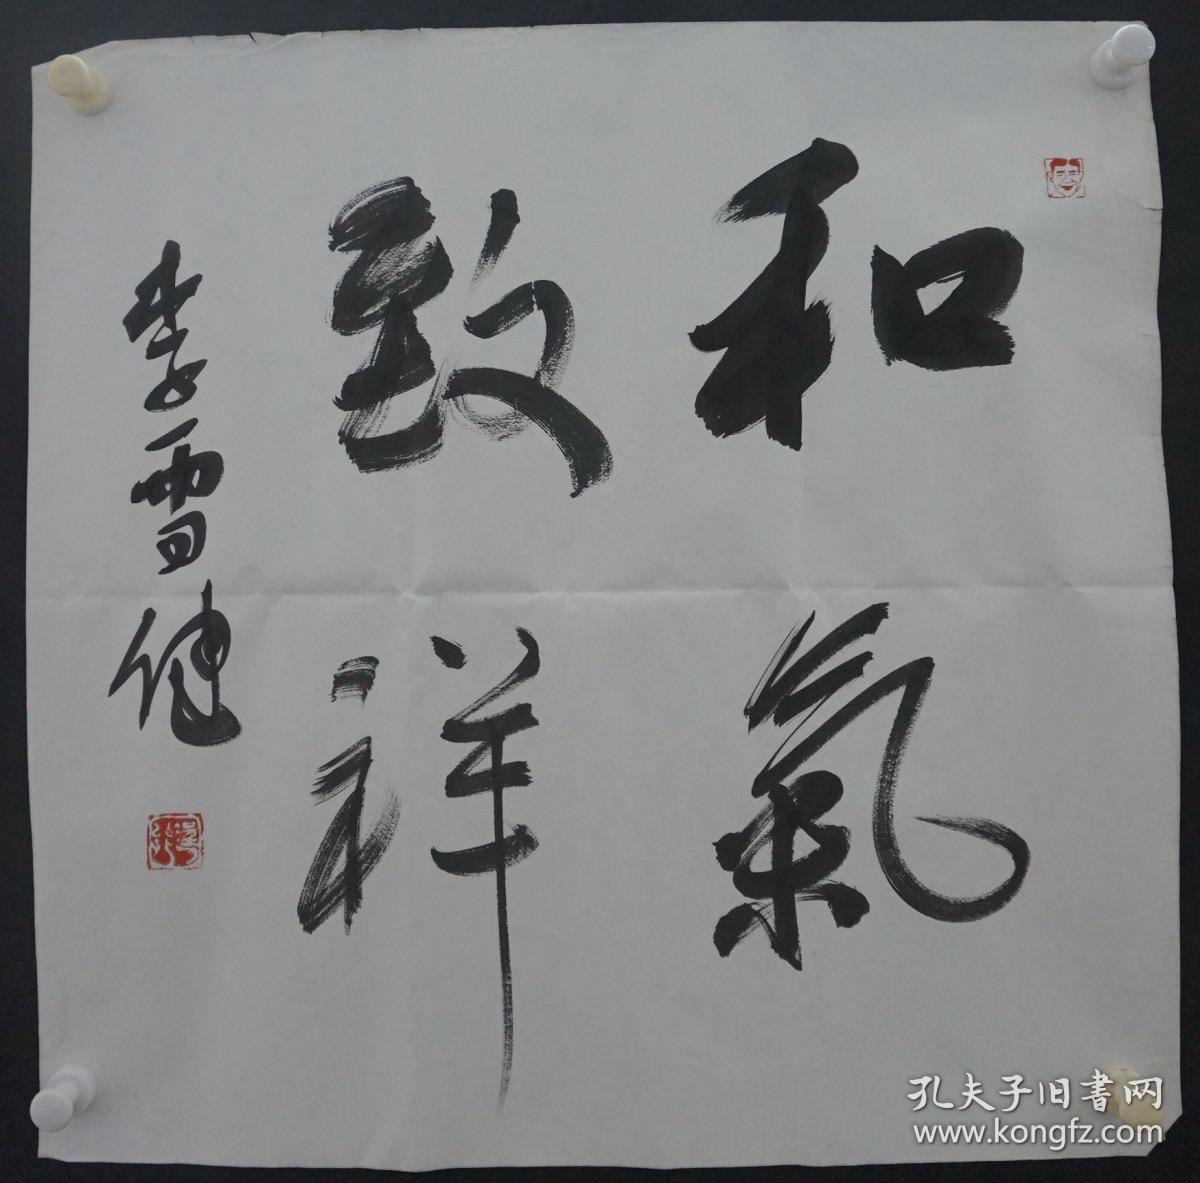 和氣
致祥
李雪健
孔夫子旧书网
www.kongfz.com